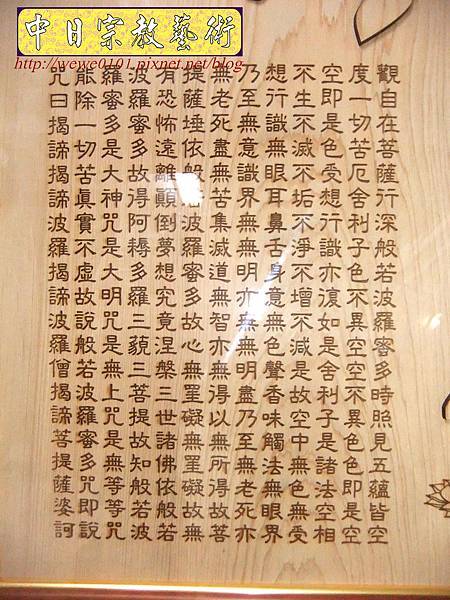 中日宗教藝術
http://wewe0101.pixnet.net/blog
觀自在菩薩行深般若波羅蜜多時照見五蘊皆空
度一切苦厄舍利子色不異空空不異色色即是空
空即是色受想行識亦復如是舍利子是諸法空相
不生不滅不垢不淨不增不減是故空中無色無受
想行識無眼耳鼻舌身意無色聲香味觸法無眼界
乃至無意識界無無明亦無無明盡乃至無老死亦
無老死盡無苦集滅道無智亦無得以無所得故菩
提薩埵依般若波羅蜜多故心無罣礙無罣礙故無
有恐怖遠離顛倒夢想究竟涅槃三世諸佛依般若
波羅蜜多故得阿耨多羅三藐三菩提故知般若波
羅蜜多是大神咒是大明咒是無上咒是無等等咒
能除一切苦眞實不虛故說般若波羅蜜多咒即說
咒曰揭諦揭諦波羅揭諦波羅僧揭諦菩提薩婆訶